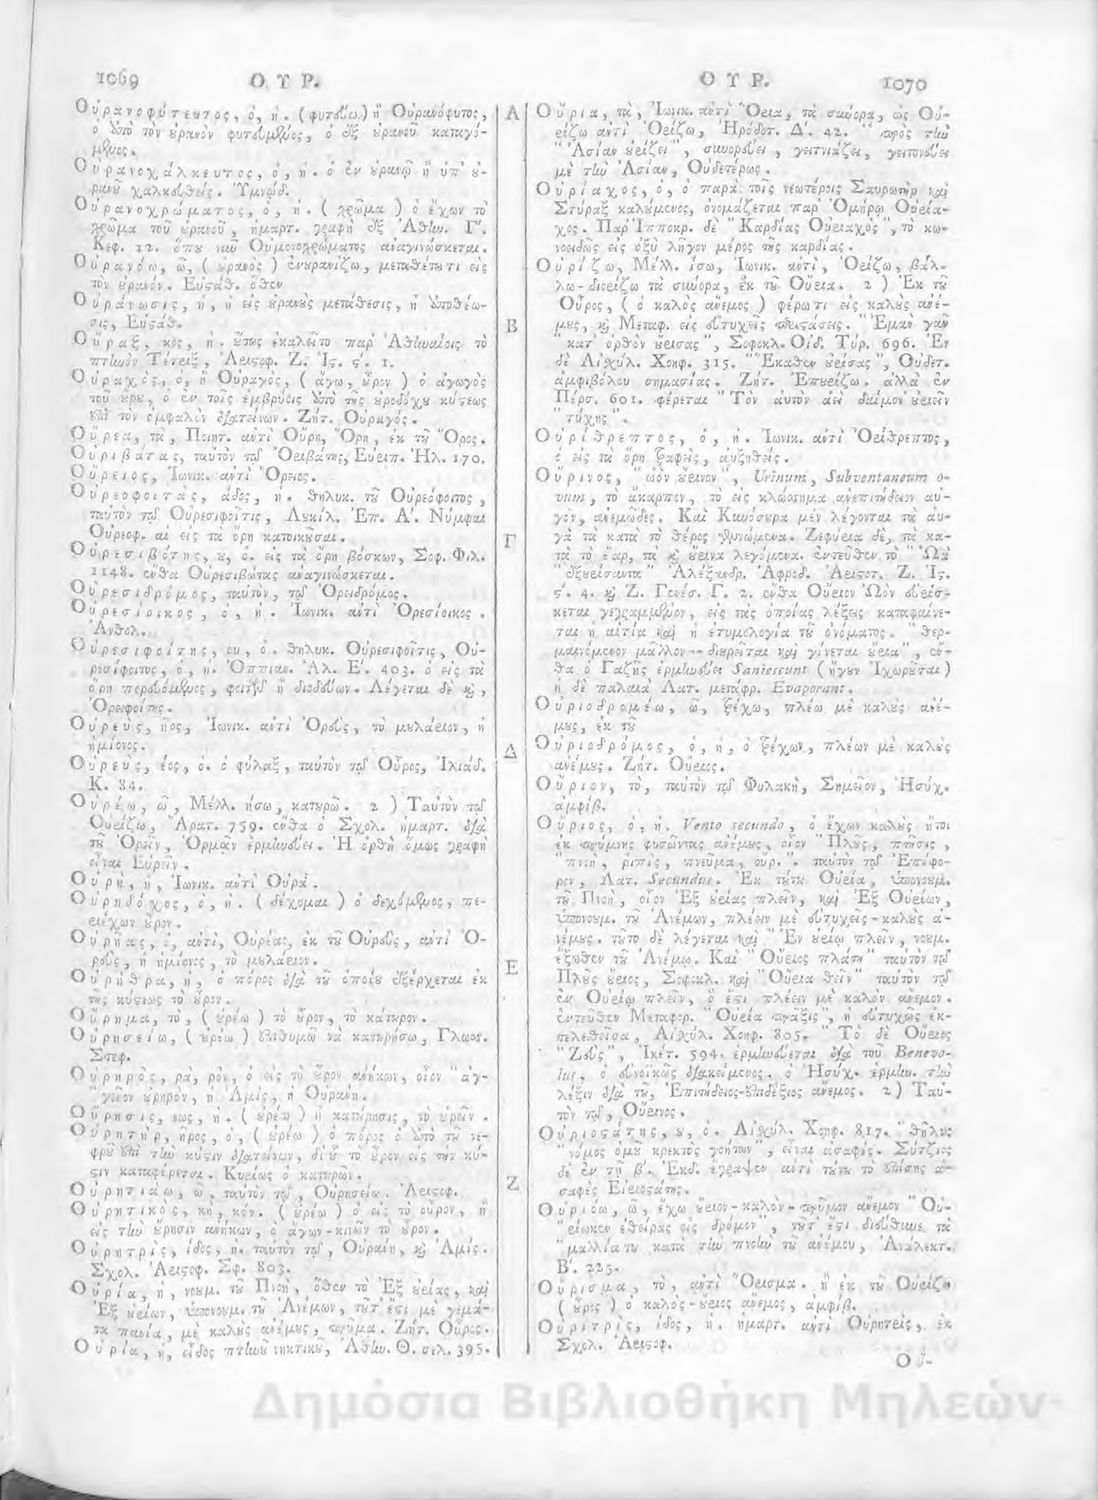 1069 ΟΥΡ.
Οὐρανοφύτευτος, ὁ, ἡ. (φυτεύω) ἢ Οὐρανόφυτος,
ὁ ὑπὸ τὸν οὐρανὸν φυτευόμενος, ὁ ἐξ οὐρανοῦ καταγό-
μενος.
Οὐρανοχάλκευτος, ὁ, ἡ. ὁ ἐν οὐρανῷ ἢ ὑπ' οὐ-
ρανοῦ χαλκευθείς. Ὑμνῳδ.
Οὐρανοχρώματος, ὁ, ἡ. (χρῶμα) ὁ ἔχων τὸ
χρῶμα τοῦ οὐρανοῦ, ἡμαρτ. γραφὴ ἐξ Ἀθην. Γ'.
Κεφ. 12. ὅπου νῦν Οὐμονοχρώματος ἀναγινώσκεται.
Οὐρανόω, ῶ, (οὐρανὸς) ἐνουρανίζω, μεταθέτω τι εἰς
τὸν οὐρανόν. Εὐσταθ. ὅθεν
Οὐράνωσις, ἡ, ἡ εἰς οὐρανοὺς μετάθεσις, ἡ ἀποθέω-
σις, Εὐσταθ.
Οὔραξ, κος, ἡ. οὕτως ἐκαλεῖτο παρ' Ἀθηναίοις τὸ
πτηνὸν Τέτριξ, Ἀριστοφ. Ζ. Ἱστ. ς'. 1.
Οὐραχὸς, ὁ, ἢ Οὐραγὸς, (ἄγω, οὖρον) ὁ ἀγωγὸς
τοῦ οὔρου, ὁ ἐν τοῖς ἐμβρύοις ἀπὸ τῆς οὐροδόχου κύστεως
ἐπὶ τὸν ὀμφαλὸν διατείνων. Ζήτ. Οὐραγός.
Οὔρεα, τὰ, Ποιητ. ἀντὶ Οὔρη, Ὄρη, ἐκ τοῦ Ὄρος.
Οὐριβάτας, ταὐτὸν τῷ Ὀρειβάτης, Εὐριπ. Ἠλ. 170.
Οὔρειος, Ἰωνικ. ἀντὶ Ὄρειος.
Οὐρεοφοιτάς, άδος, ἡ. θηλυκ. τοῦ Οὐρεόφοιτος,
ταὐτὸν τῷ Οὐρεσιφοῖτις, Λυκίλ. Ἐπ. Α'. Νύμφαι
Οὐρεοφ. αἱ εἰς τὰ ὄρη κατοικοῦσαι.
Οὐρεσιβότης, ου, ὁ. εἰς τὰ ὄρη βόσκων, Σοφ. Φιλ.
1148. ἔνθα Οὐρεσιβώτας ἀναγινώσκεται.
Οὐρεσιδρόμος, ταὐτὸν, τῷ Ὀρειδρόμος.
Οὐρεσίοικος, ὁ, ἡ. Ἰωνικ. ἀντὶ Ὀρεσίοικος.
Ἀνθολ.
Οὐρεσιφοίτης, ου, ὁ. θηλυκ. Οὐρεσιφοῖτις, Οὐ-
ρεσίφοιτος, ὁ, ἡ. Ὀππιαν. Ἁλ. Ε'. 403. ὁ εἰς τὰ
ὄρη πορευόμενος, φοιτῶν ἢ διοδεύων. Λέγεται δὲ καὶ,
Ὀρειφοίτης.
Οὐρεὺς, ῆος, Ἰωνικ. ἀντὶ Ὀρεὺς, τὸ μουλάριον, ἡ
ἡμίονος.
Οὐρεὺς, έος, ὁ. ὁ φύλαξ, ταὐτὸν τῷ Οὖρος, Ἰλιάδ.
Κ. 84.
Οὐρέω, ῶ, Μέλλ. ήσω, κατουρῶ. 2) Ταὐτὸν τῷ
Οὐρίζω, Ἄρατ. 759. ἔνθα ὁ Σχολ. ἡμαρτ. διὰ
τοῦ Ὁρεῖν, Ὁρμᾷν ἑρμηνεύει. Ἡ ὀρθὴ ὅμως γραφὴ
εἶναι Εὑρεῖν.
Οὐρὴ, ἡ, Ἰωνικ. ἀντὶ Οὐρά.
Οὐρηδόχος, ὁ, ἡ. (δέχομαι) ὁ δεχόμενος, πε-
ριέχων οὖρον.
Οὐρῆας, ἀντὶ, Οὐρέας, ἐκ τοῦ Οὐρεὺς, ἀντὶ Ὀ-
ρεὺς, ἡ ἡμίονος, τὸ μουλάριον.
Οὐρήθρα, ἡ, ὁ πόρος διὰ τοῦ ὁποίου ἐξέρχεται ἐκ
τῆς κύστεως τὸ οὖρον.
Οὔρημα, τὸ, (οὐρέω) τὸ οὖρον, τὸ κάτουρον.
Οὐρησείω, (οὐρέω) ἐπιθυμῶ νὰ κατουρήσω, Γλωσσ.
Στεφ.
Οὐρηρὸς, ρὰ, ρὸν, ὁ εἰς τὸ οὖρον ἀνήκων, οἷον "ἀγ-
"γεῖον οὐρηρὸν, ἡ Ἀμὶς, ἡ Οὐράνη.
Οὔρησις, εως, ἡ. (οὐρέω) ἡ κατούρησις, τὸ οὐρεῖν.
Οὐρητὴρ, ῆρος, ὁ, (οὐρέω) ὁ πόρος ὁ ἀπὸ τῶν νε-
φρῶν ἐπὶ τὴν κύστιν διατείνων, δι' οὗ τὸ οὖρον εἰς τὴν κύ-
στιν καταφέρεται. Κυρίως ὁ κατουρῶν.
Οὐρητιάω, ῶ, ταὐτὸν τῷ, Οὐρησείω. Ἀριστοφ.
Οὐρητικὸς, κὴ, κόν. (οὐρέω) ὁ εἰς τὸ οὖρον, ἢ
εἰς τὴν οὔρησιν ἀνήκων, ὁ ἄγων-κινῶν τὸ οὖρον.
Οὐρητρὶς, ίδος, ἡ. ταὐτὸν τῷ, Οὐράνη, καὶ Ἀμίς.
Σχολ. Ἀριστοφ. Σφ. 803.
Οὐρία, ἡ, νοουμ. τοῦ Πνοὴ, ὅθεν τὸ Ἐξ οὐρίας, καὶ
Ἐξ οὐρίων, ὑπονοουμ. τοῦ Ἀνέμων, τοῦτ' ἔστι μὲ γεμά-
τα πανία, μὲ καλοὺς ἀνέμους, πρύμα. Ζήτ. Οὖρος.
Οὐρία, ἡ, εἶδος πτηνοῦ νηκτικοῦ, Ἀθην. Θ. σελ. 395.
Α
Β
Γ
Δ
Ε
Ζ
ΟΥΡ. 1070
Οὔρια, τὰ, Ἰωνικ. ἀντὶ Ὅρια, τὰ σύνορα, ὡς Οὐ-
ρίζω ἀντὶ Ὁρίζω, Ἡρόδοτ. Δ'. 42. "πρὸς τὴν
"Ἀσίαν οὐρίζει", συνορεύει, γειτνιάζει, γειτονεύει
μὲ τὴν Ἀσίαν, Οὐδετέρως.
Οὐρίαχος, ὁ, ὁ παρὰ τοῖς νεωτέροις Σαυρωτὴρ καὶ
Στύραξ καλούμενος, ὀνομάζεται παρ' Ὁμήρῳ Οὐρία-
χος. Παρ' Ἱπποκρ. δὲ "Καρδίας Οὐρίαχος", τὸ κω-
νοειδῶς εἰς ὀξὺ λῆγον μέρος τῆς καρδίας.
Οὐρίζω, Μέλλ. ίσω, Ἰωνικ. ἀντὶ, Ὁρίζω, βάλ-
λω-διορίζω τὰ σύνορα, ἐκ τοῦ Οὔρια. 2) Ἐκ τοῦ
Οὖρος, (ὁ καλὸς ἄνεμος) φέρω τι εἰς καλοὺς ἀνέ-
μους, καὶ Μεταφ. εἰς εὐτυχεῖς περιστάσεις. "Ἐμὰν γᾶν
"κατ' ὀρθὸν οὔρισας", Σοφοκλ. Οἰδ. Τύρ. 696. Ἐν
δὲ Αἰσχύλ. Χοηφ. 315. "Ἔκαθεν οὐρίσας", Οὐδετ.
ἀμφιβόλου σημασίας. Ζήτ. Ἐπουρίζω. ἀλλὰ ἐν
Πέρσ. 601. φέρεται "Τὸν αὐτὸν ἀεὶ δαίμον' οὐριεῖν
"τύχης".
Οὐρίθρεπτος, ὁ, ἡ. Ἰωνικ. ἀντὶ Ὀρίθρεπτος,
ὁ εἰς τὰ ὄρη τραφεὶς, αὐξηθείς.
Οὔρινος, "ὠὸν οὔρινον", Urinum, Subventaneum o-
vum, τὸ ἄκαρπον, τὸ εἰς κλώσημα ἀνεπιτήδειον αὐ-
γὸν, ἀνεμῶδες. Καὶ Κυνόσουρα μὲν λέγονται τὰ αὐ-
γὰ τὰ κατὰ τὸ θέρος γεννώμενα. Ζεφύρια δὲ, τὰ κα-
τὰ τὸ ἔαρ, τὰ καὶ οὔρινα λεγόμενα. ἐντεῦθεν τὸ "Ὠὰ
"ἐξουρίσαντα" Ἀλέξανδρ. Ἀφροδ. Ἀριστοτ. Ζ. Ἱστ.
ς'. 4. καὶ Ζ. Γενέσ. Γ. 2. ἔνθα Οὔριον Ὠὸν εὑρίσ-
κεται γεγραμμένον, εἰς τὰς ὁποίας λέξεις καταφαίνε-
ται ἡ αἰτία καὶ ἡ ἐτυμολογία τοῦ ὀνόματος. "θερ-
μαινόμενον μᾶλλον--διαρεῖται καὶ γίνεται οὔρια", ἔν-
θα ὁ Γαζῆς ἑρμηνεύει Saniescunt (ἤγουν Ἰχωροῦται)
ἡ δὲ παλαιὰ Λατ. μετάφρ. Evaporant.
Οὐριοδρομέω, ῶ, τρέχω, πλέω μὲ καλοὺς ἀνέ-
μους, ἐκ τοῦ
Οὐριοδρόμος, ὁ, ἡ, ὁ τρέχων, πλέων μὲ καλοὺς
ἀνέμους. Ζήτ. Οὔριος.
Οὔριον, τὸ, ταὐτὸν τῷ Φυλακὴ, Σημεῖον, Ἡσύχ.
ἀμφίβ.
Οὔριος, ὁ, ἡ. Vento secundo, ὁ ἔχων καλοὺς ἤτοι
ἐκ πρύμνης φυσῶντας ἀνέμους, οἷον "Πλοῦς, πτῆσις,
"πνοὴ, ῥιπὶς, πνεῦμα, οὔρ.". ταὐτὸν τῷ Ἐπίφο-
ρον, Λατ. Secundus. Ἐκ τούτου Οὐρία, ὑπονοουμ.
τοῦ Πνοὴ, οἷον Ἐξ οὐρίας πλεῖν, καὶ Ἐξ Οὐρίων,
ὑπονοουμ. τοῦ Ἀνέμων, πλέειν μὲ εὐτυχεῖς-καλοὺς ἀ-
νέμους. τοῦτο δὲ λέγεται καὶ "Ἐν οὐρίῳ πλεῖν, νοουμ.
ἔξωθεν τοῦ Ἀνέμῳ. Καὶ "Οὔριος πλάτη" ταὐτὸν τῷ
Πλοῦς οὔριος, Σοφοκλ. καὶ "Οὔρια θεῖν" ταὐτὸν τῷ
ἐν Οὐρίῳ πλεῖν, ὅ ἐστι πλέειν μὲ καλὸν ἄνεμον.
ἐντεῦθεν Μεταφορ. "Οὐρία πρᾶξις", ἡ εὐτυχῶς ἐκ-
τελεσθεῖσα, Αἰσχύλ. Χοηφ. 805. "Τὸ δὲ Οὔριος
"Ζεὺς", Ἱκέτ. 594. ἑρμηνεύεται διὰ τοῦ Benevo-
lus, ὁ εὐνοϊκῶς διακείμενος. ὁ Ἡσύχ. ἑρμην. τὴν
λέξιν διὰ τοῦ, Ἐπιτήδειος-ἐπιδέξιος ἄνεμος. 2) Ταὐ-
τὸν τῷ, Οὔρινος.
Οὐριοστάτης, ου, ὁ. Αἰσχύλ. Χοηφ. 817. "θῆλυς
"νόμος ὁμοῦ κρεκτὸς γοήτων", εἶναι ἀσαφές. Σύτζιος
δὲ ἐν τῇ β'. Ἐκδ. ἔγραψεν ἀντὶ τούτου τὸ ἐπίσης ἀ-
σαφὲς Εἰριοστάτης.
Οὐριόω, ῶ, ἔχω οὔριον-καλὸν-πρύμον ἄνεμον "Οὐ-
"ρίωκεν ἐθείρας εἰς δρόμον", τοῦτ' ἔστι διεύθυνε τὰ
"μαλλία του κατὰ τὴν πνοὴν τοῦ ἀνέμου, Ἀνάλεκτ.
Β'. 225.
Οὔρισμα, τὸ, ἀντὶ Ὅρισμα. ἢ ἐκ τοῦ Οὐρίζω
(οὖρος) ὁ καλὸς-οὔριος ἄνεμος, ἀμφίβ.
Οὐριτρὶς, ίδος, ἡ. ἡμαρτ. ἀντὶ Οὐρητρὶς, ἐκ
Σχολ. Ἀριστοφ.
Οὔ-
Δημόσια Βιβλιοθήκη Μηλεών